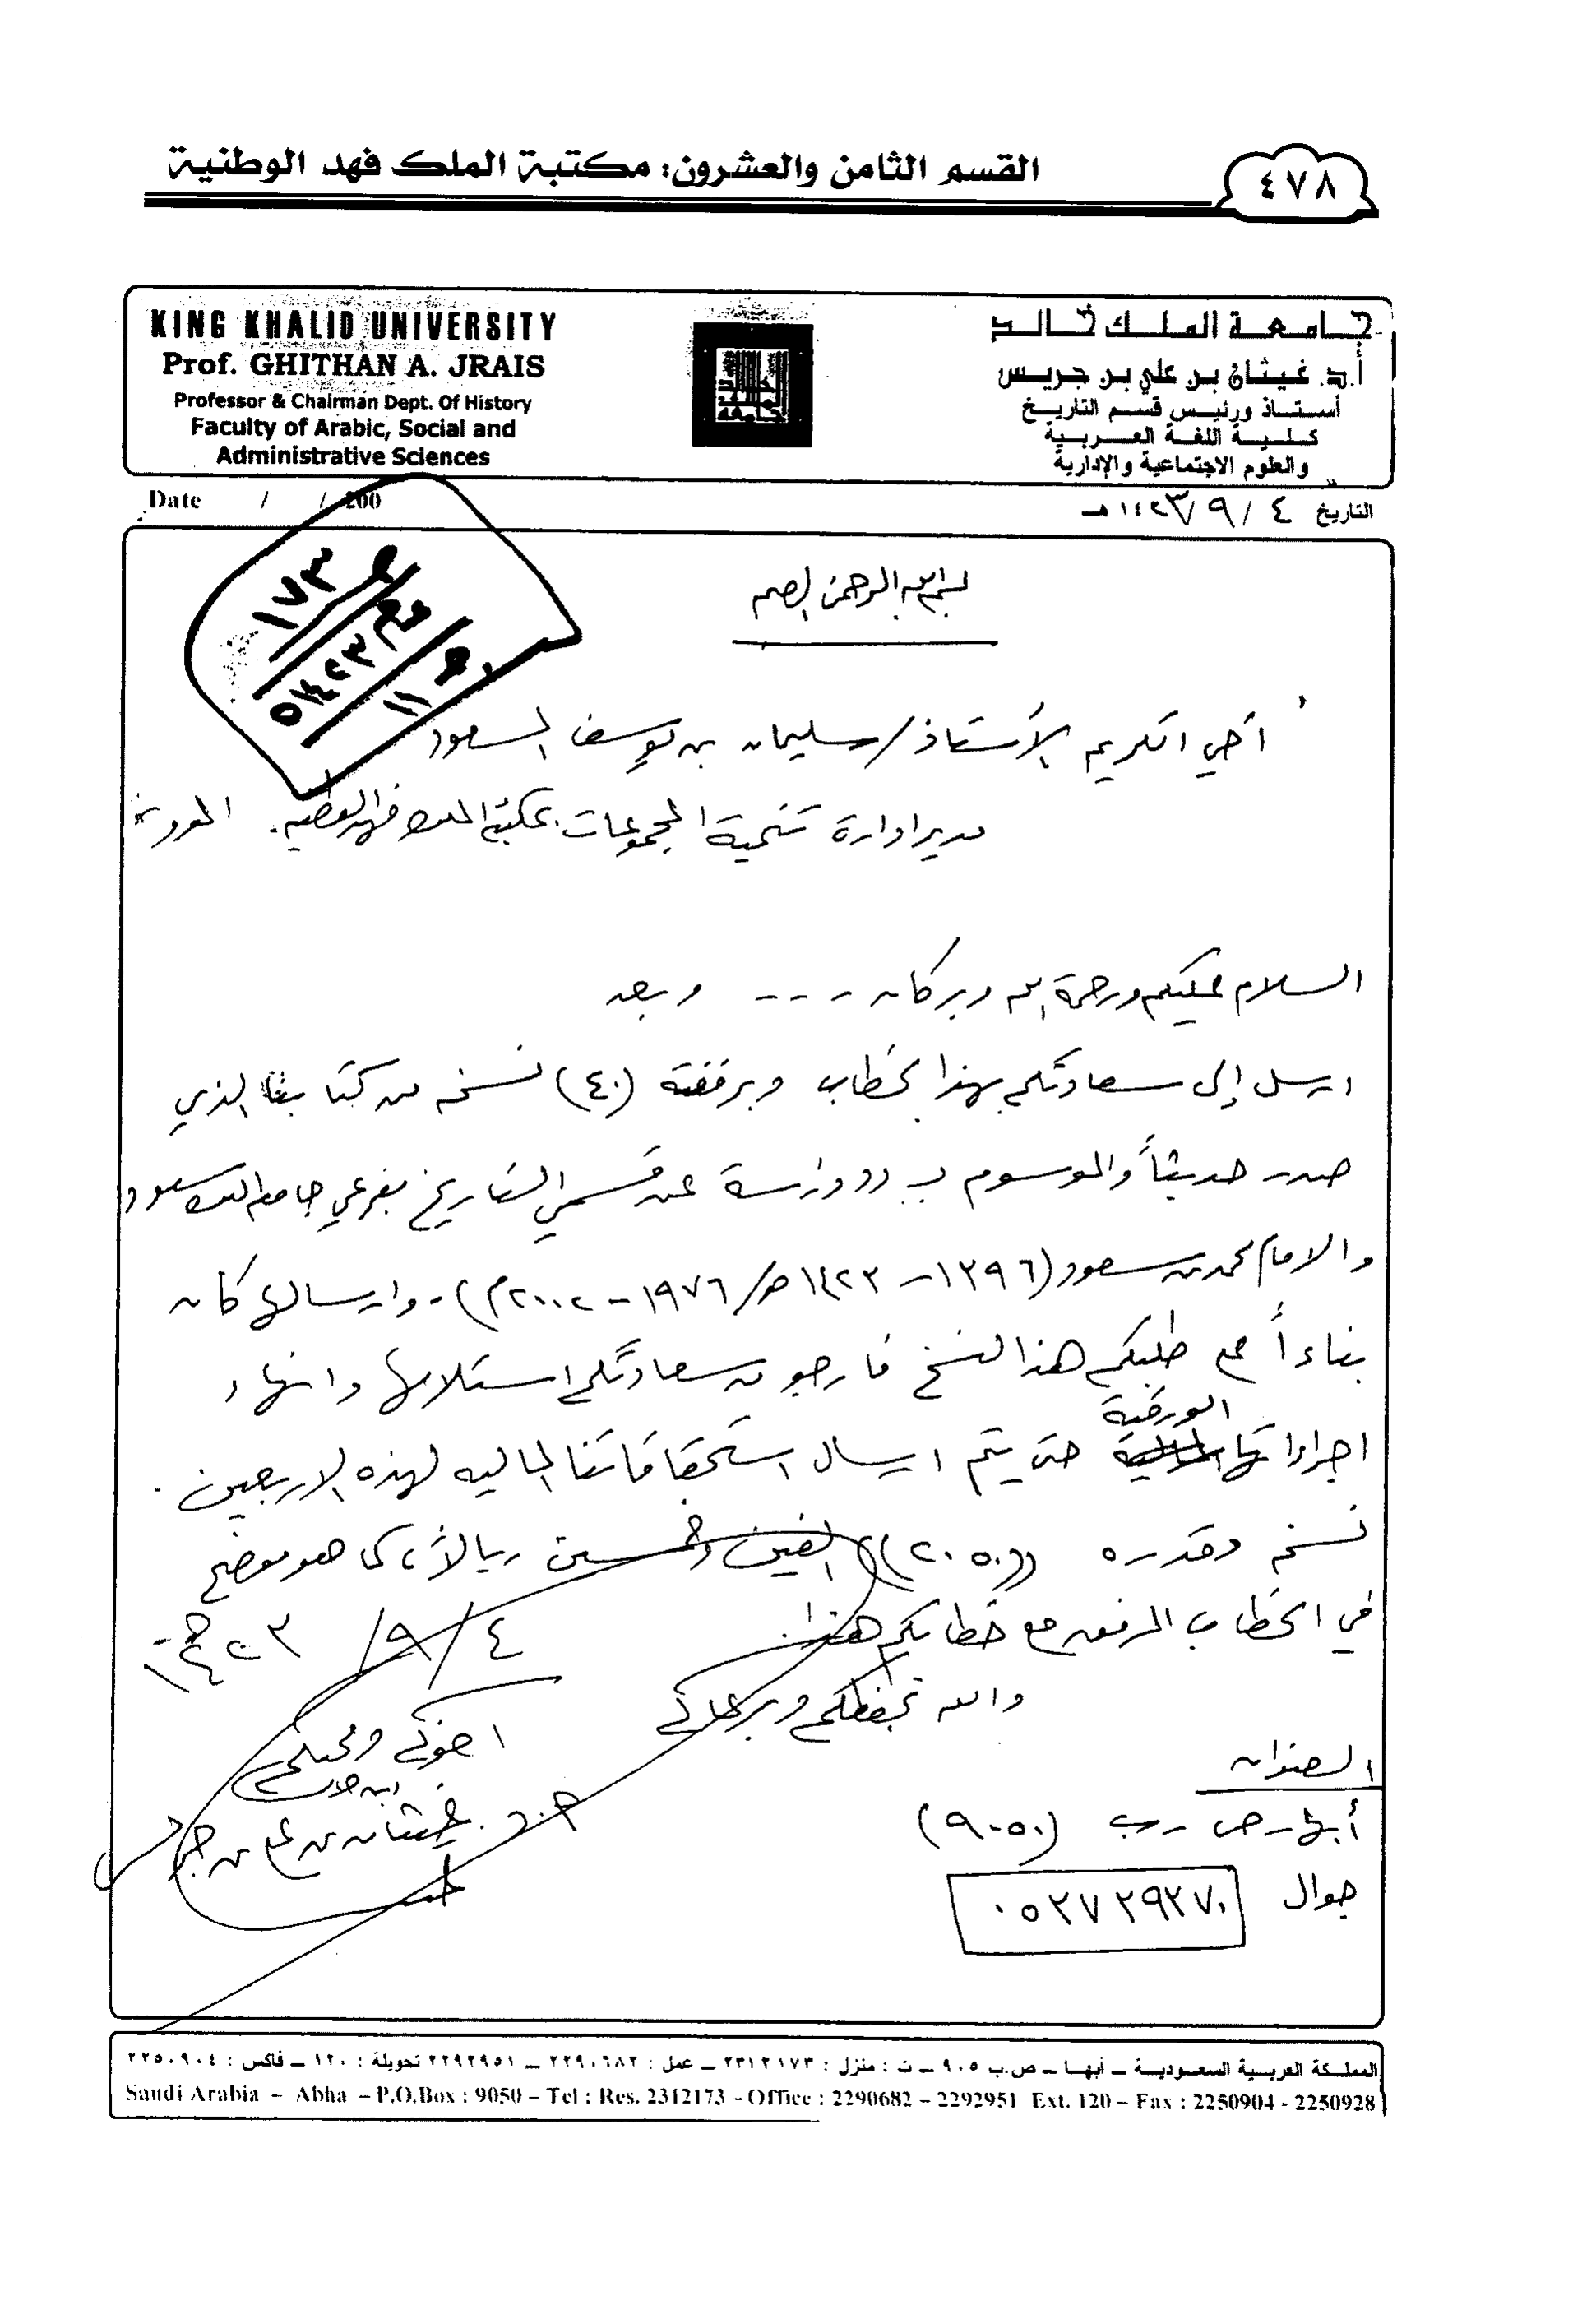 القسم الثامن والعشرون: مكتبة الملك فهد الوطنية
٤٧٨
KING KHALID UNIVERSITY
Prof. GHITHAN A. JRAIS
Professor & Chairman Dept. Of History
Faculty of Arabic, Social and
Administrative Sciences
جامعة الملك خالد
أ.د. غيثان بن علي بن جريس
أستاذ ورئيس قسم التاريخ
كلية اللغة العربية
والعلوم الاجتماعية والإدارية
Date / / 200
التاريخ ٤ / ٩ / ١٤٢٣هـ
١٧٣
١٤٢٣
١١
بسم الله الرحمن الرحيم
أخي الكريم الأستاذ / سليمان بن يوسف السعود
مدير ادارة تنمية المجموعات بمكتبة الملك فهد الوطنيه. الموقر
السلام عليكم ورحمة الله وبركاته - - - - وبعد
ارسل إلى سعادتكم بهذا الخطاب وبرفقته (٤٠) نسخه من كتابنا الذي
صدر حديثاً والموسوم بـ دراسة عن قسمي التاريخ بفرعي جامعة الملك سعود
والامام محمد بن سعود (١٣٩٦ – ١٤٢٣هـ / ١٩٧٦ – ٢٠٠٢م) - وارسالها كان
بناءاً على طلبكم هذا النسخ فارجو من سعادتكم استلامها وانهاء
اجراءاتها الورقية حتى يتم ارسال استحقاقاتنا الماليه لهذه الاربعين
نسخه وقدره ((٢٠٥٠)) الفين وخمسين ريالاً، كما هو موضح
في الخطاب المرفق مع خطابكم هذا.
٤ / ٩ / ١٤٢٣هـ
والله يحفظكم ويرعاكم
اخوكم ومحبكم
أ.د. غيثان بن علي بن جريس
العنوان
أبها - ص - ب (٩٠٥٠)
جوال ٠٥٣٧٢٩٣٧٠
المملكة العربية السعودية – أبها – ص.ب ٩٠٥ – ت : منزل : ٢٣١٢١٧٣ – عمل : ٢٢٩٠٦٨٢ – ٢٢٩٢٩٥١ تحويلة : ١٢٠ – فاكس : ٢٢٥٠٩٠٤
Saudi Arabia – Abha – P.O.Box : 9050 – Tel : Res. 2312173 – Office : 2290682 – 2292951 Ext. 120 – Fax : 2250904 - 2250928